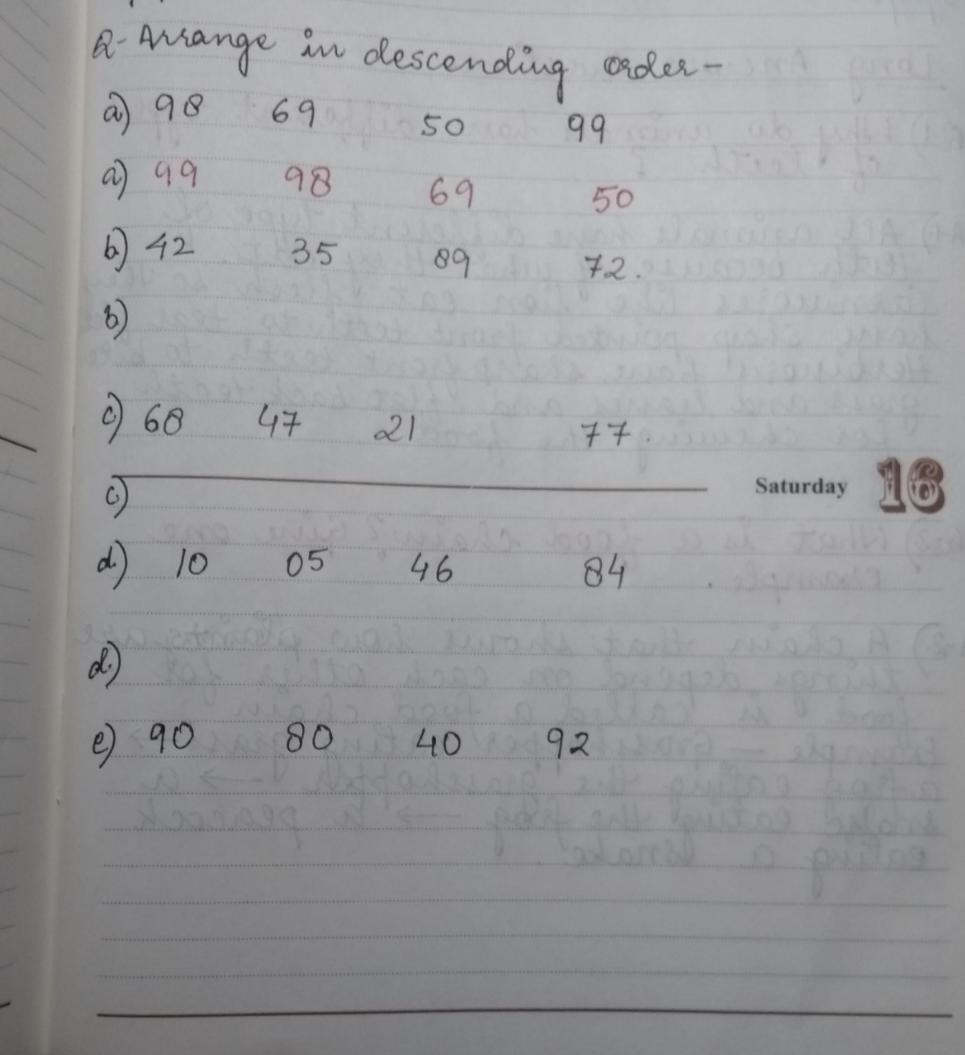 Q- Arrange in descending order-
a) 98 69 50 99
a) 99 98 69 50
b) 42 35 89 72.
b)
c) 68 47 21 77.
Saturday 16
c)
d) 10 05 46 84
d)
e) 90 80 40 92